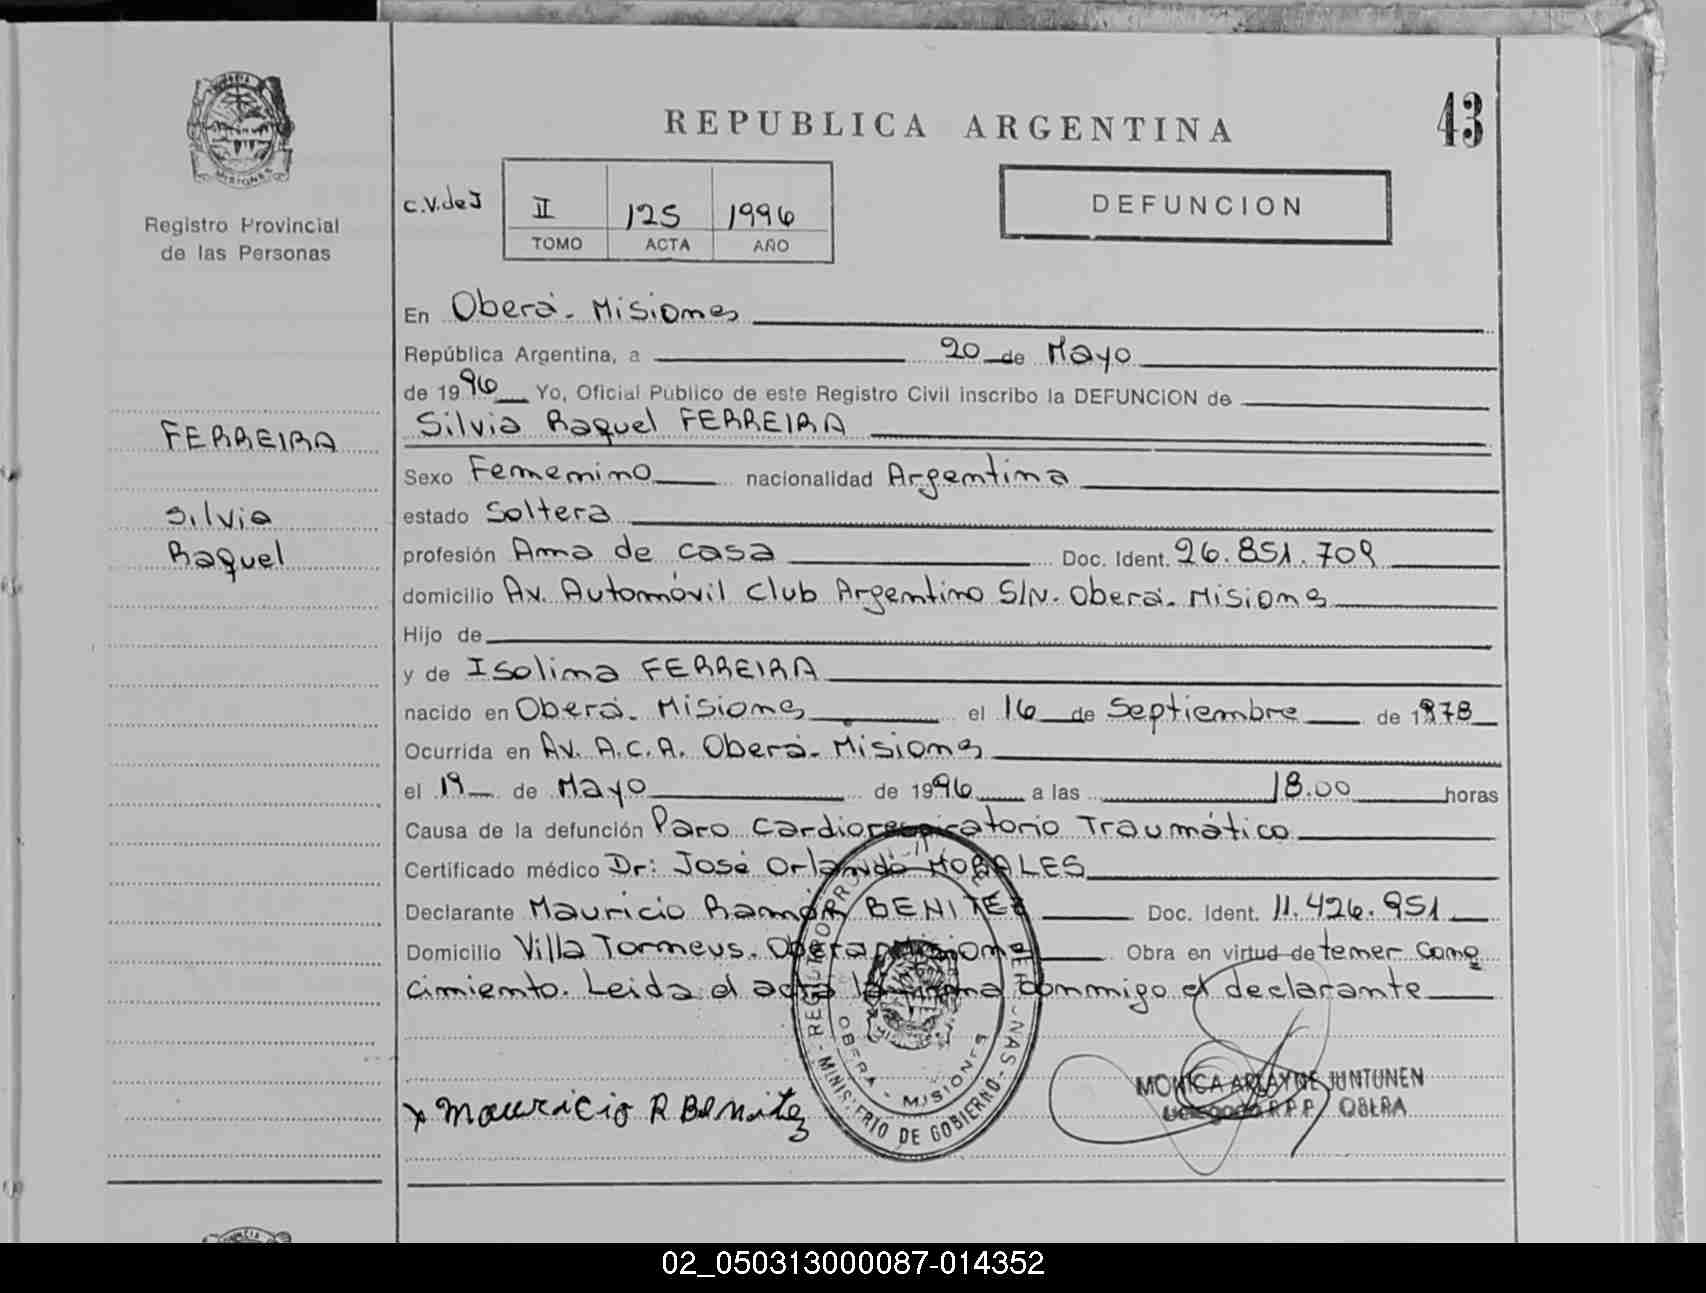 REPUBLICA ARGENTINA
43
MISIONES
Registro Provincial
de las Personas
C.V.deJ
II 125 1996
TOMO ACTA AÑO
DEFUNCION
FERREIRA
Silvia
Raquel
En Oberá - Misiones
República Argentina, a 20 de Mayo
de 1996 Yo, Oficial Público de este Registro Civil inscribo la DEFUNCION de
Silvia Raquel FERREIRA
Sexo Femenino nacionalidad Argentina
estado Soltera
profesión Ama de casa Doc. Ident. 26.851.709
domicilio Av. Automóvil Club Argentino S/N. Oberá - Misiones
Hijo de
y de Isolina FERREIRA
nacido en Oberá - Misiones el 16 de Septiembre de 1978
Ocurrida en Av. A.C.A. Oberá - Misiones
el 19 de Mayo de 1996 a las 18.00 horas
Causa de la defunción Paro Cardiorespiratorio Traumático
Certificado médico Dr: José Orlando MORALES
Declarante Mauricio Ramón BENITEZ Doc. Ident. 11.426.951
Domicilio Villa Torneus. Oberá - Misiones Obra en virtud de tener cono
cimiento. Leida el acta la firma conmigo el declarante
OBERA - MISIONES
MINISTERIO DE GOBIERNO
x Mauricio R Benitez
MONICA ARLAYNE JUNTUNEN
Delegada R.P.P. OBERA
02_050313000087-014352